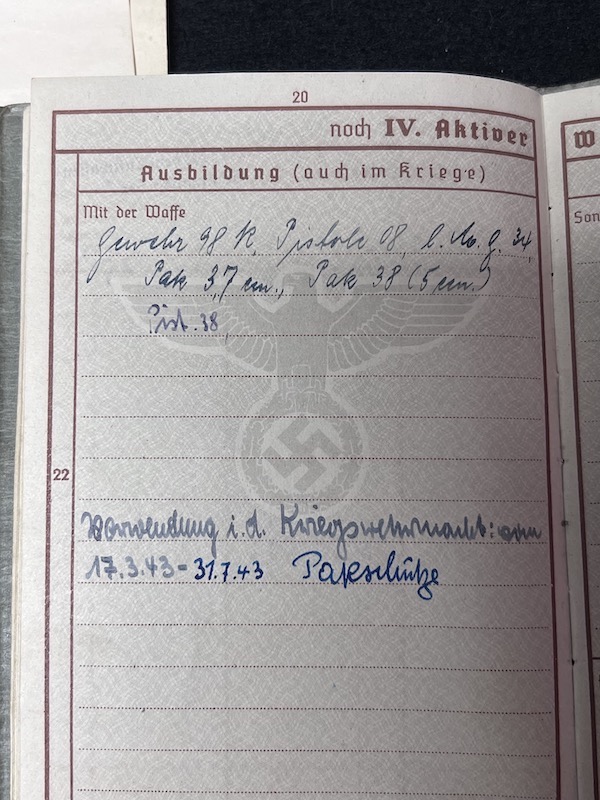 20
noch IV. Aktiver
Ausbildung (auch im Kriege)
Mit der Waffe
Gewehr 98 K, Pistole 08, l. M. G. 34,
Pak 3,7 cm., Pak 38 (5 cm.)
Pist. 38
22
Verwendung i. d. Kriegswehrmacht: vom
17.3.43 - 31.7.43 Pakschütze
W
Son